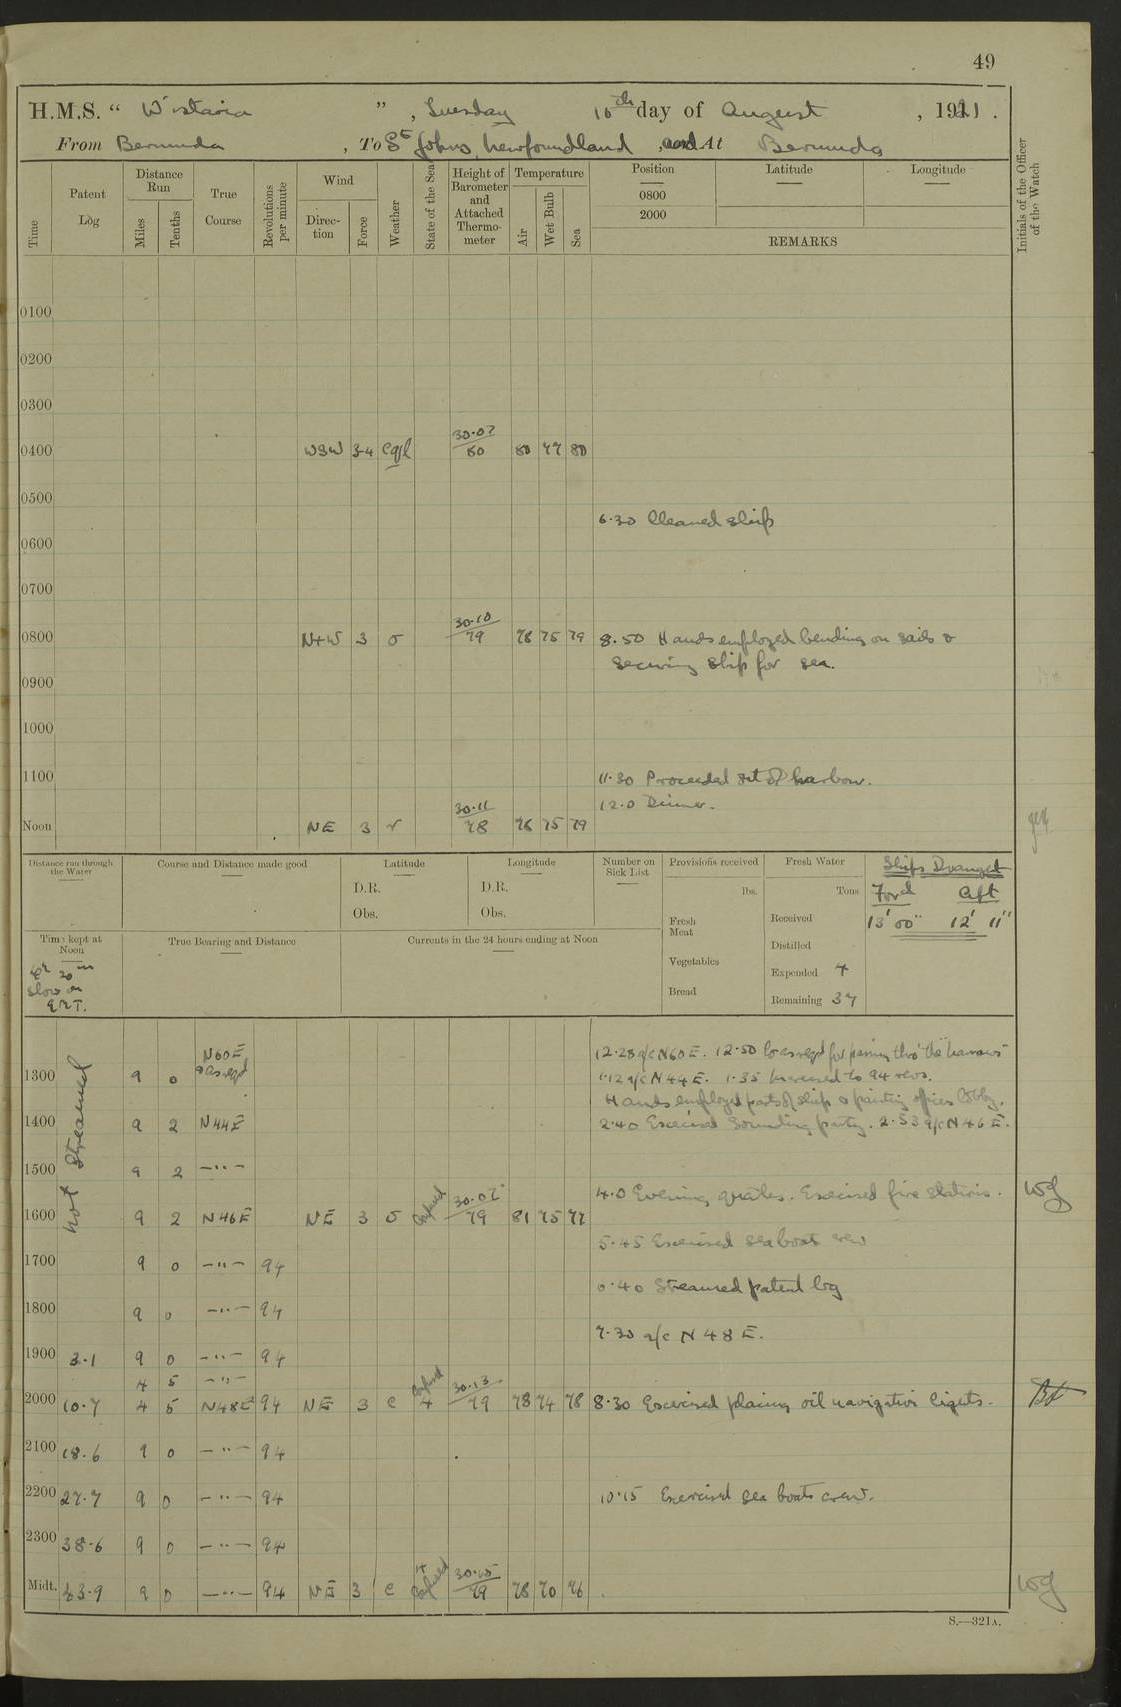 49
H.M.S. " Wistaria ", Tuesday 16th day of August, 1921.
From Bermuda, To St Johns, Newfoundland, and At Bermuda
Time
Patent Log
Distance Run
Miles
Tenths
True Course
Revolutions per minute
Wind
Direction
Force
Weather
State of the Sea
Height of Barometer and Attached Thermometer
Temperature
Air
Wet Bulb
Sea
Position
0800
2000
Latitude
Longitude
REMARKS
Initials of the Officer of the Watch
0100
0200
0300
0400 WSW 3-4 cqrl 30.07/80 80 77 80
0500
6.30 Cleaned ship
0600
0700
0800 N+W 3 o 30.10/79 78 75 79 8.50 Hands employed bending on sails &
securing ship for sea.
0900
1000
1100 11.30 Proceeded out of harbour.
12.0 Dinner.
Noon NE 3 r 30.11/78 76 75 79
Distance run through the Water
Course and Distance made good
Latitude
D.R.
Obs.
Longitude
D.R.
Obs.
Number on Sick List
Provisions received
lbs.
Fresh Meat
Vegetables
Bread
Fresh Water
Tons
Received
Distilled
Expended 4
Remaining 37
Ships Draught
Ford Aft
13' 00" 12' 11"
Time kept at Noon
20m
slow on
G.M.T.
True Bearing and Distance
Currents in the 24 hours ending at Noon
not streamed
N60E
12.28 a/c N60E. 12.50 Co as reqd for passing thro' the narrows
1300 9 0 & as reqd 1.12 a/c N44E. 1.35 Increased to 94 revs.
Hands employed parts of ship & painting officers lobby.
1400 9 2 N44E 2.40 Exercised Sounding party. 2.53 a/c N46E.
1500 9 2 —"—
4.0 Evening quarters. Exercised fire stations. WG
1600 9 2 N46E NE 3 o Confused 30.07/79 81 75 77
5.45 Exercised sea boats crew
1700 9 0 —"— 94
6.40 Streamed patent log
1800 9 0 —"— 94
7.30 a/c N48E.
1900 3.1 9 0 —"— 94
4 5 —"—
2000 10.7 4 5 N48E 94 NE 3 c Confused 4 30.13/79 78 74 78 8.30 Exercised placing oil navigation lights.
2100 18.6 9 0 —"— 94
2200 27.7 9 0 —"— 94 10.15 Exercised sea boats crew.
2300 38.6 9 0 —"— 94
Midt. 9 0 —"— 94 NE 3 c 4 Confused 30.15/79 78 70 76 WG
S.—321A.